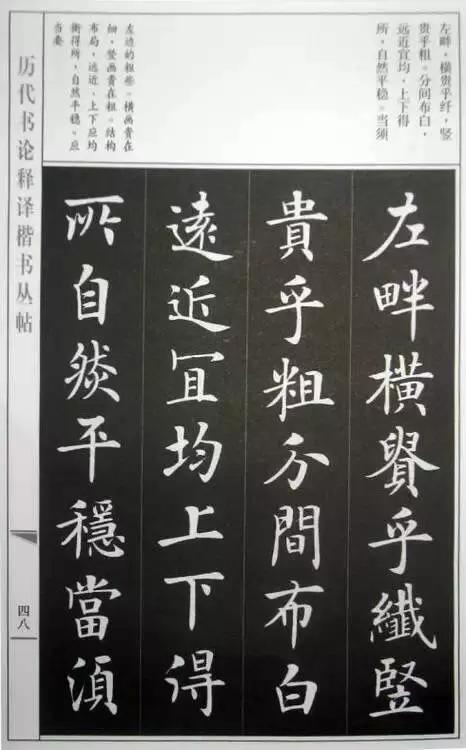 左畔，横贵乎纤，竖
贵乎粗。分间布白，
远近宜均，上下得
所，自然平稳。当须
左边的粗些。横画贵在
细，竖画贵在粗。结构
布局，远近、上下应均
衡得所，自然平稳。应
当要
左畔橫貴乎纖竪
貴乎粗分間布白
遠近冝均上下得
所自然平穩當須
历代书论释译楷书丛帖
四八